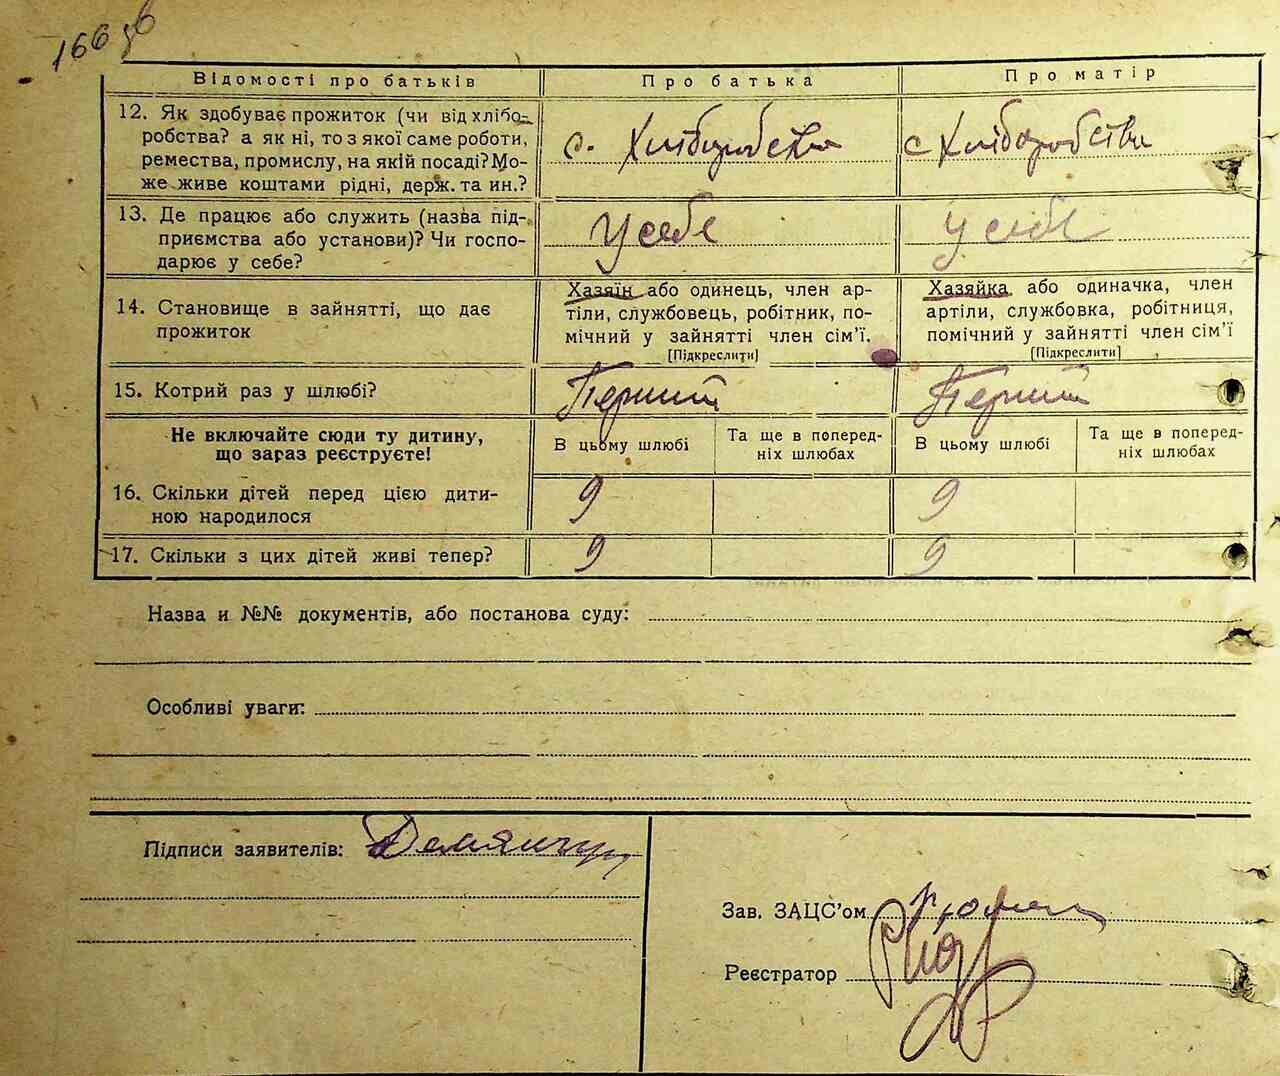 166 зв
Відомості про батьків
Про батька
Про матір
12. Як здобуває прожиток (чи від хлібо-
робства? а як ні, то з якої саме роботи,
ремества, промислу, на якій посаді? Мо-
же живе коштами рідні, держ. та ин.?
с. Хліборобства
с Хліборобства
13. Де працює або служить (назва під-
приємства або установи)? Чи госпо-
дарює у себе?
у себе
у себе
14. Становище в зайнятті, що дає
прожиток
Хазяїн або одинець, член ар-
тіли, службовець, робітник, по-
мічний у зайнятті член сім'ї.
[Підкреслити]
Хазяйка або одиначка, член
артіли, службовка, робітниця,
помічний у зайнятті член сім'ї
[Підкреслити]
15. Котрий раз у шлюбі?
Перший
Перший
Не включайте сюди ту дитину,
що зараз реєструєте!
В цьому шлюбі
Та ще в поперед-
ніх шлюбах
В цьому шлюбі
Та ще в поперед-
ніх шлюбах
16. Скільки дітей перед цією дити-
ною народилося
9
9
17. Скільки з цих дітей живі тепер?
9
9
Назва и №№ документів, або постанова суду:
Особливі уваги:
Підписи заявителів: Демянчук
Зав. ЗАЦС'ом
Реєстратор